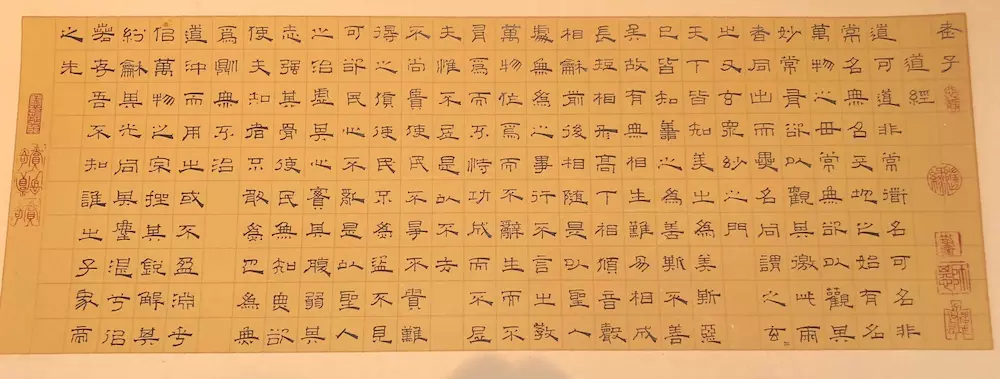 老子
道經
道可道非常道名可名非
常名無名天地之始有名
萬物之母常無欲以觀其
妙常有欲以觀其徼此兩
者同出而異名同謂之玄
之又玄眾妙之門
天下皆知美之為美斯惡
已皆知善之為善斯不善
矣故有無相生難易相成
長短相形高下相傾音聲
相龢前後相隨是以聖人
處無為之事行不言之教
萬物作焉而不辭生而不
有為而不恃功成而不居
夫惟不居是以不去
不尚賢使民不爭不貴難
得之貨使民不為盜不見
可欲民心不亂是以聖人
之治虛其心實其腹弱其
志强其骨使民無知無欲
使夫知者不敢為也為無
為則無不治
道沖而用之或不盈淵乎
似萬物之宗挫其銳解其
紛龢其光同其塵湛兮似
若存吾不知誰之子象帝
之先